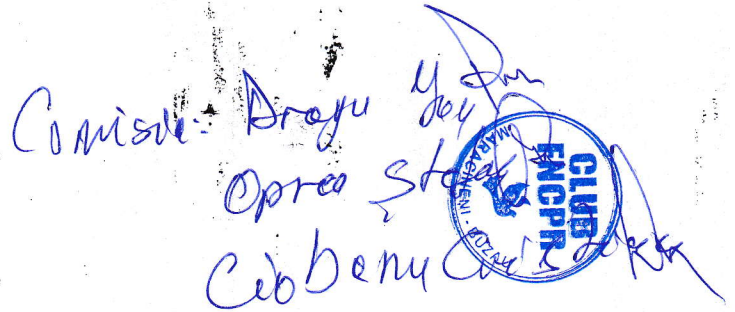 Comisia: Dragu
Oprea Ștefan
Ciobanu Cristian
CLUB
ENCPR
MARACINENI - BUZAU